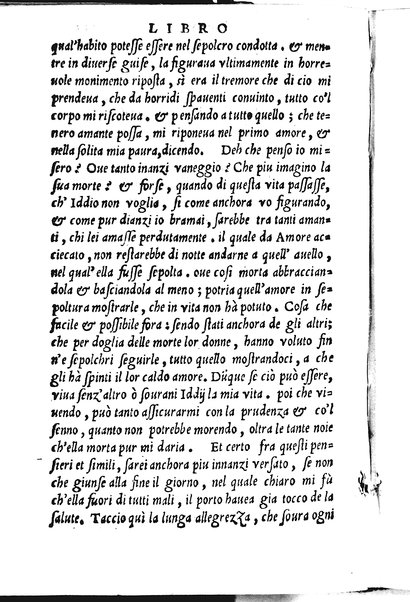 LIBRO
qual'habito poteſſe eſſere nel ſepolcro condotta. & men-
tre in diuerſe guiſe, la figuraua vltimamente in horre-
uole monimento ripoſta, ſi era il tremore che di cio mi
prendeua, che da horridi ſpauenti conuinto, tutto co'l
corpo mi riſcoteua. & penſando a tutto quello; che te-
nero amante poſſa, mi riponeua nel primo amore, &
nella ſolita mia paura, dicendo. Deh che penſo io mi-
ſero? Oue tanto inanzi vaneggio? Che piu imagino la
ſua morte? & forſe, quando di queſta vita paſſaſſe,
ch'Iddio non voglia, ſi come anchora vo figurando,
& come pur dianzi io bramai, ſarebbe tra tanti aman-
ti, chi lei amaſſe perdutamente. il quale da Amore ac-
ciecato, non reſtarebbe di notte andarne a quell' auello,
nel qual'ella fuſſe ſepolta. oue coſi morta abbraccian-
dola & baſciandola al meno; potria quell'amore in ſe-
poltura moſtrarle, che in vita non hà potuto. Coſa che
facile & poſſibile fora: ſendo ſtati anchora de gli altri;
che per doglia delle morte lor donne, hanno voluto fin
n'e ſepolchri ſeguirle, tutto quello moſtrandoci, a che
gli hà ſpinti il lor caldo amore. Dũque ſe ciò può eſſere,
viua ſenz'altro ò ſourani Iddij la mia vita. poi che vi-
uendo, può tanto aſſicurarmi con la prudenza & co'l
ſenno, quanto non potrebbe morendo, oltra le tante noie
ch'ella morta pur mi daria. Et certo fra queſti pen-
ſieri et ſimili, ſarei anchora piu innanzi verſato, ſe non
che giunſe alla fine il giorno, nel quale chiaro mi fù
ch'ella fuori di tutti mali, il porto hauea gia tocco de la
ſalute. Taccio quì la lunga allegrezza, che ſoura ogni